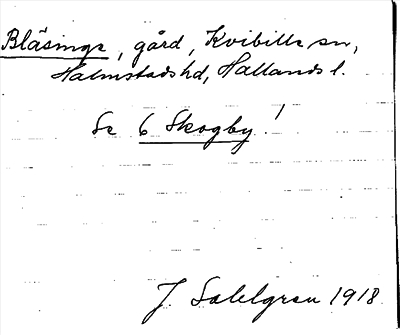 Bläsinge, gård, Kvibille sn,
Halmstads hd, Hallands l.
Se 6 Skogby!
J. Sahlgren 1918